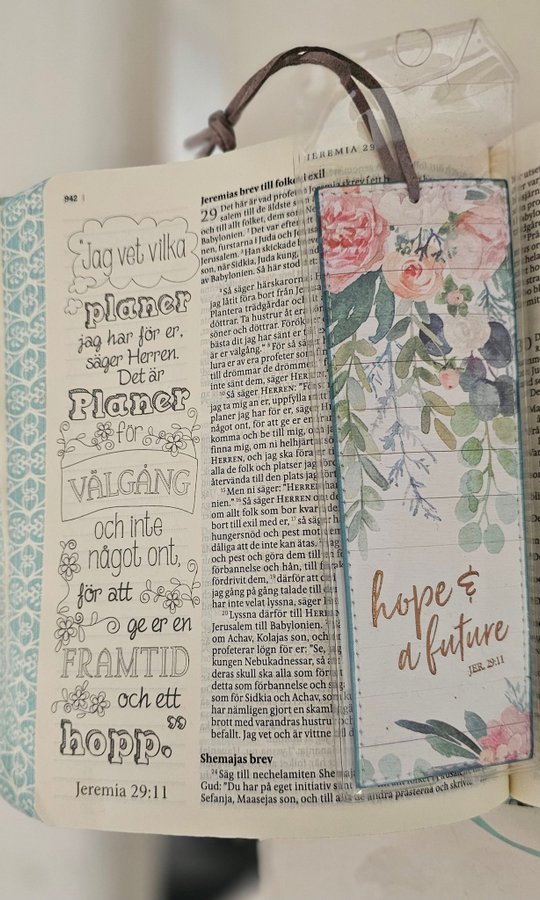 942
"Jag vet vilka
planer
jag har för er,
säger Herren.
Det är
Planer
för
VÄLGÅNG
och inte
något ont,
för att
ge er en
FRAMTID
och ett
hopp."
Jeremia 29:11
JEREMIA 29
Jeremias brev till folket i exil
29 Det här är vad
salem till de äldste
och till allt folket, dem som
Babylonien.
nen, furstarna i Juda och
Jerusalem. ³Han skickade
son, när Sidkia, Juda kung,
av Babylonien. Så här stod
⁴Så säger härskarornas
jag låtit föra bort från
Plantera trädgårdar och
döttrar. Ta hustrur åt era
söner och döttrar.
bästa dit jag har sänt er
er är välgång. ⁸För så
lura er av era profeter som
till drömmar de drömmer
inte sänt dem, säger HERREN.
¹⁰Så säger HERREN: "Först
jag ta mig an er, uppfylla
planer jag har för er, säger
något ont, för att ge er en
komma och be till mig, och
finna mig, om ni helhjärtat
HERREN, och jag ska föra
alla de folk och platser jag
återvända till den plats jag
¹⁵Men ni säger: "HERREN har
nien." ¹⁶Så säger HERREN om
om allt folk som bor kvar
bort till exil med er, ¹⁷så säger
hungersnöd och pest mot
dåliga att de inte kan ätas.
och pest och göra dem till
förbannelse och hån, till
fördrivit dem, ¹⁹därför att
jag gång på gång talade till
har inte velat lyssna, säger
²⁰Lyssna därför till HERRENS
Jerusalem till Babylonien.
om Achav, Kolajas son, och
profeterar lögn för er: "Se,
kungen Nebukadnessar, så
deras skull ska alla som
detta som förbannelse och
för som Sidkia och Achav, som
har nämligen gjort en skamlig
brott med varandras hustrur
befallt. Jag vet och är vittne
Shemajas brev
²⁴Säg till nechelamiten Shemaja
Gud: "Du har på eget initiativ
Sefanja, Maasejas son, och till alla de andra prästerna och
hope &
a future
JER. 29:11